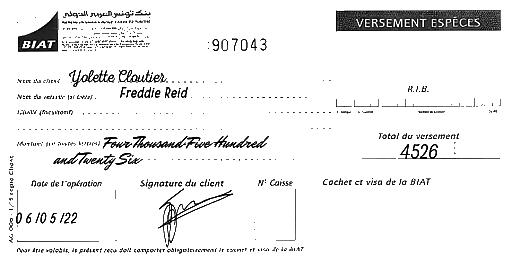 بنك تونس العربي الدولي
BIAT
VERSEMENT ESPÈCES
907043
Nom du client Yolette Cloutier
Nom du verseur (si tiers) Freddie Reid
Libellé (facultatif)
R.I.B.
Montant (en toutes lettres) Four Thousand Five Hundred
and Twenty Six
Total du versement
4526
Date de l'opération
Signature du client
N° Caisse
Cachet et visa de la BIAT
06/05/22
Pour être valable, le présent reçu doit comporter obligatoirement le cachet et visa de la BIAT